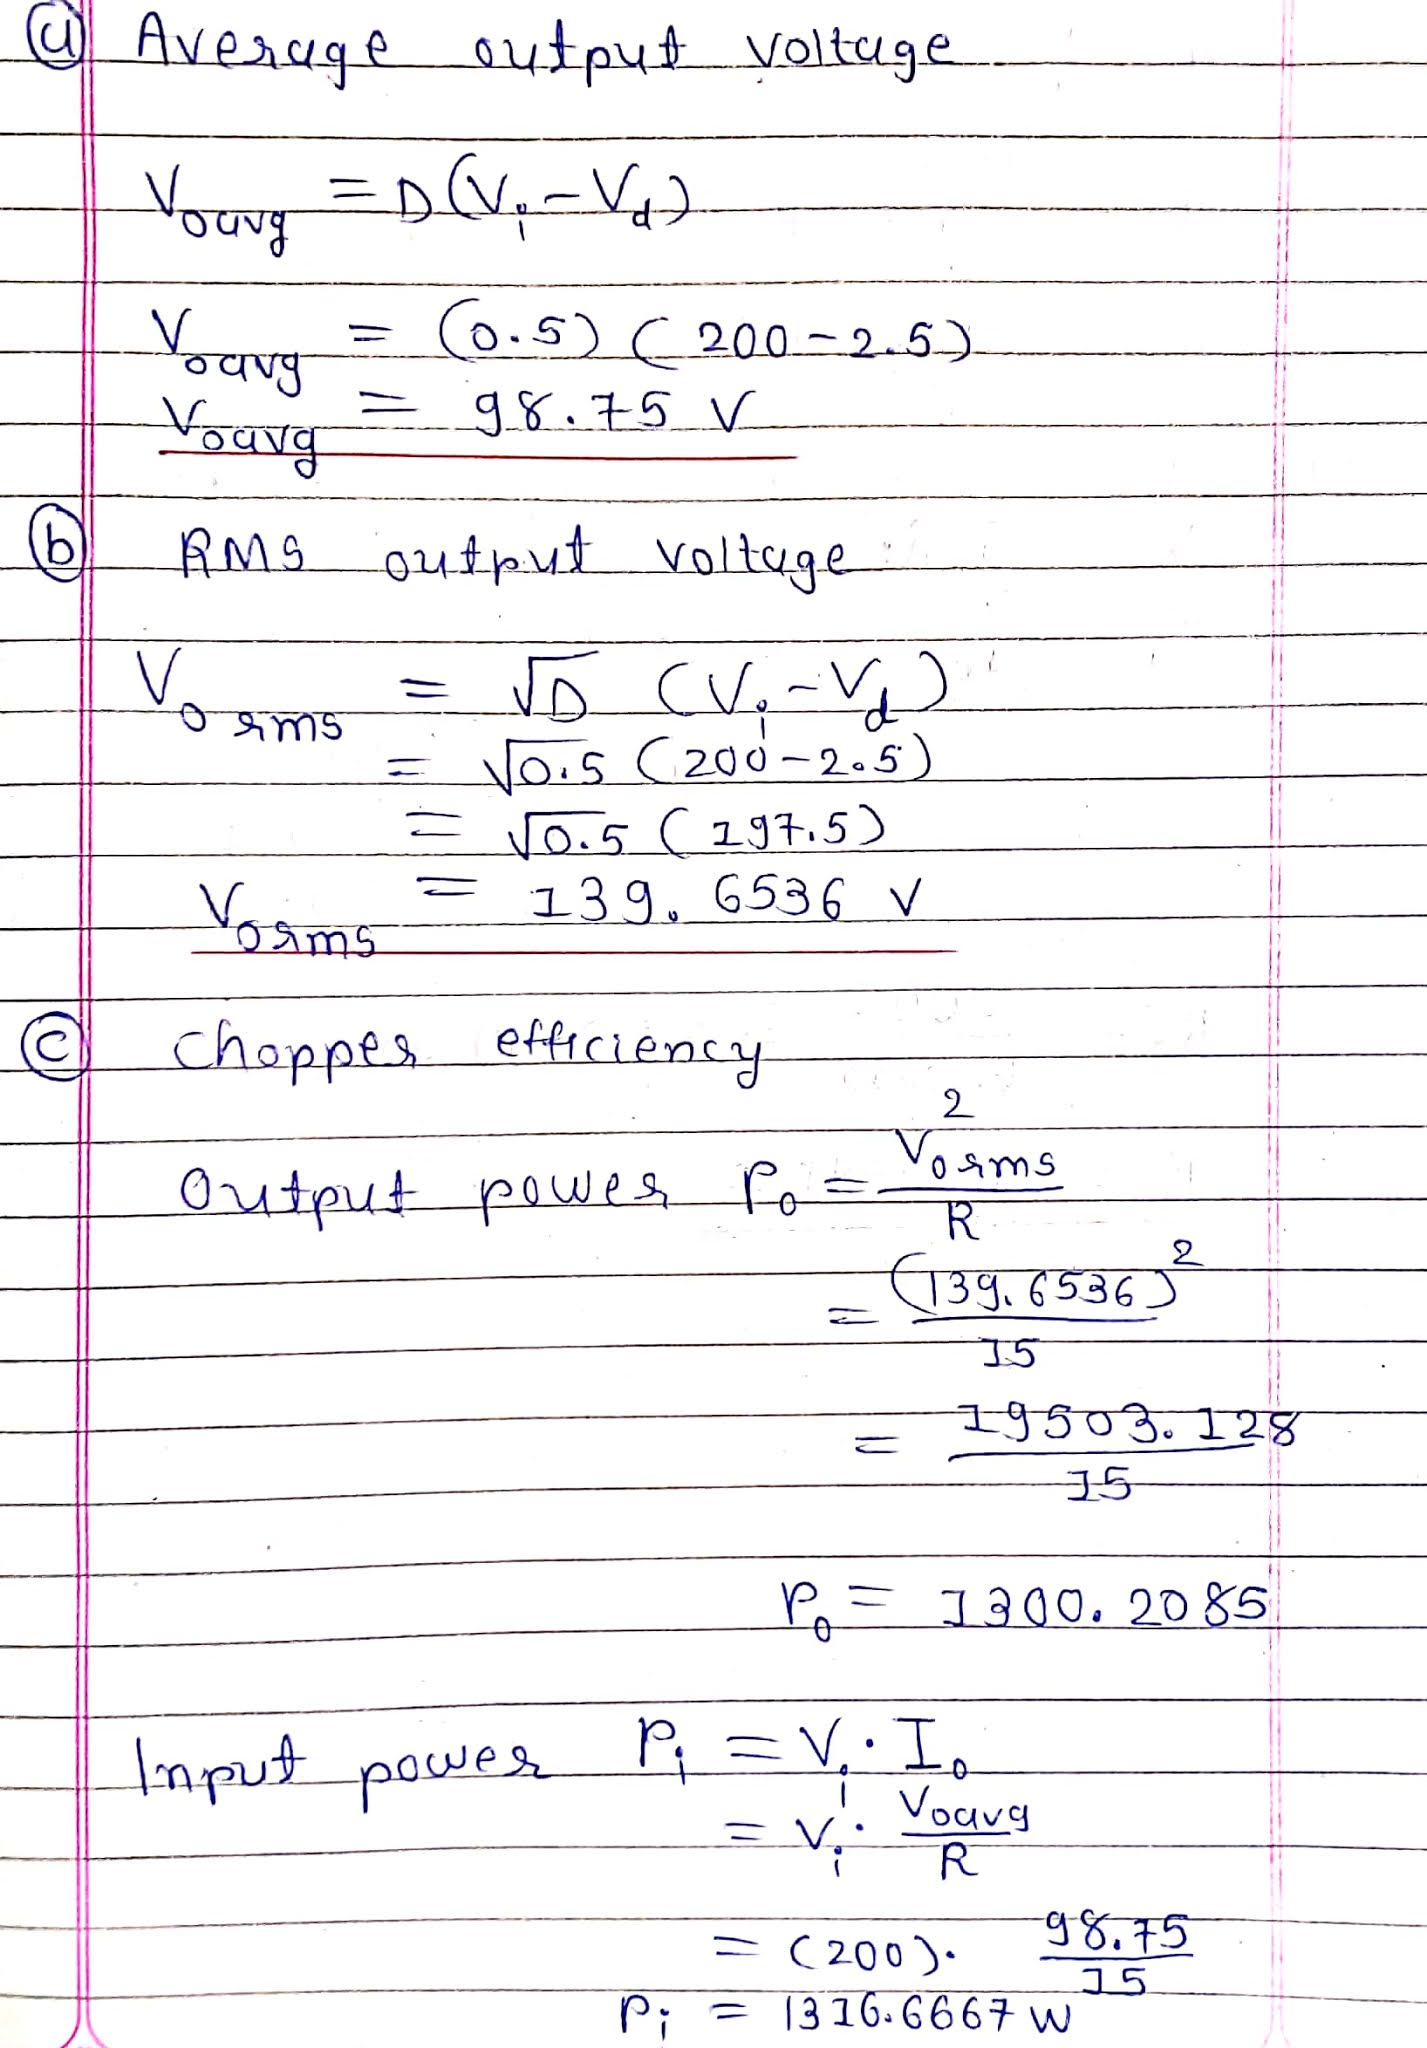 (a) Average output voltage
Voavg = D(Vi-Vd)
Voavg = (0.5) (200-2.5)
Voavg = 98.75 V
(b) RMS output voltage
Vo rms = √D (Vi-Vd)
= √0.5 (200-2.5)
= √0.5 (197.5)
Vorms = 139.6536 V
(c) chopper efficiency
Output power Po = Vorms² / R
= (139.6536)² / 15
= 19503.128 / 15
Po = 1300.2085
Input power Pi = Vi · Io
= Vi · Voavg / R
= (200) · 98.75 / 15
Pi = 1316.6667 W